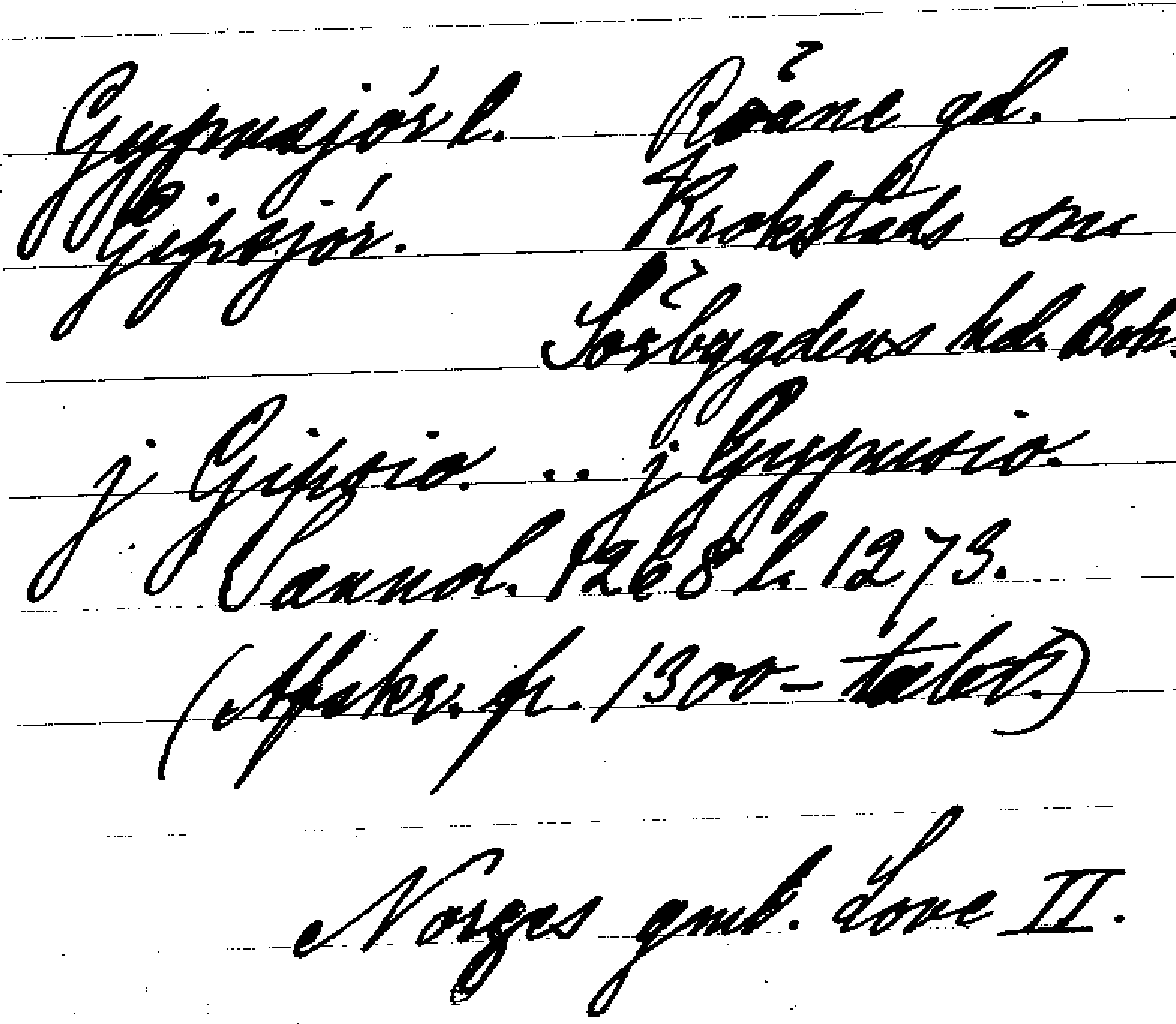 Gypusjór l. Röäne gd.
Gipsjór. Krokstads sn.
Sörbygdens hd. Boh
j Gipsio. .. j Gypusio.
Lannd. 1268 l. 1273.
(Afskr. fr. 1300-talet.)
Norges gml. Love II.